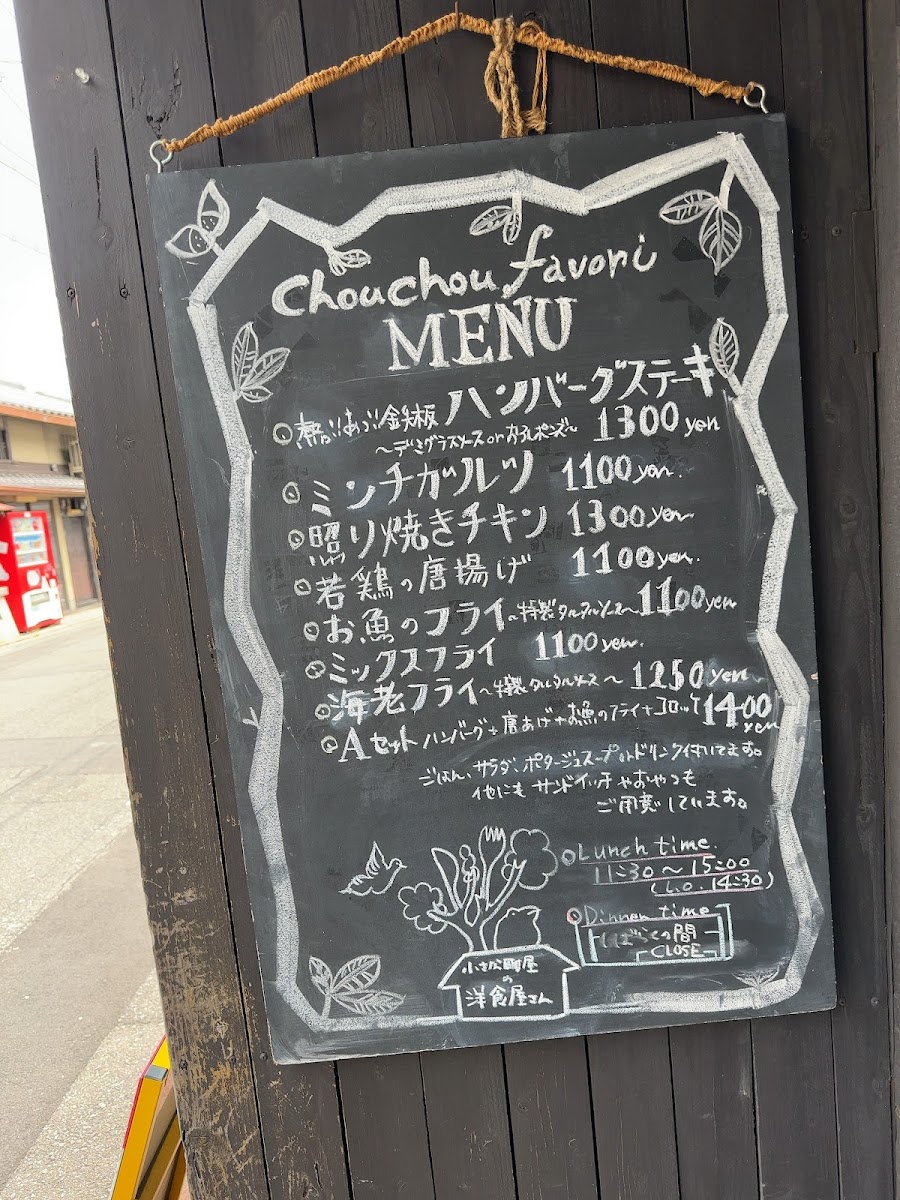 Chouchou favori
MENU
熱!!あつ!!鉄板 ハンバーグステーキ
～デミグラスソース or おろしポンズ～ 1300 yen
ミンチカツレツ 1100 yen.
照り焼きチキン 1300 yen
若鶏の唐揚げ 1100 yen.
お魚のフライ～特製タルタルソース～1100 yen
ミックスフライ 1100 yen.
海老フライ～特製タルタルソース～ 1250 yen
Aセット ハンバーグ+唐あげ+お魚のフライ+コロッケ 1400 yen
ごはん、サラダ、ポタージュスープ or ドリンク付いてます。
他にも サンドイッチやおやつも
ご用意しています。
Lunch time.
11:30～15:00
(L.o. 14:30)
Dinner time
しばらくの間
CLOSE
小さな町屋
の
洋食屋さん